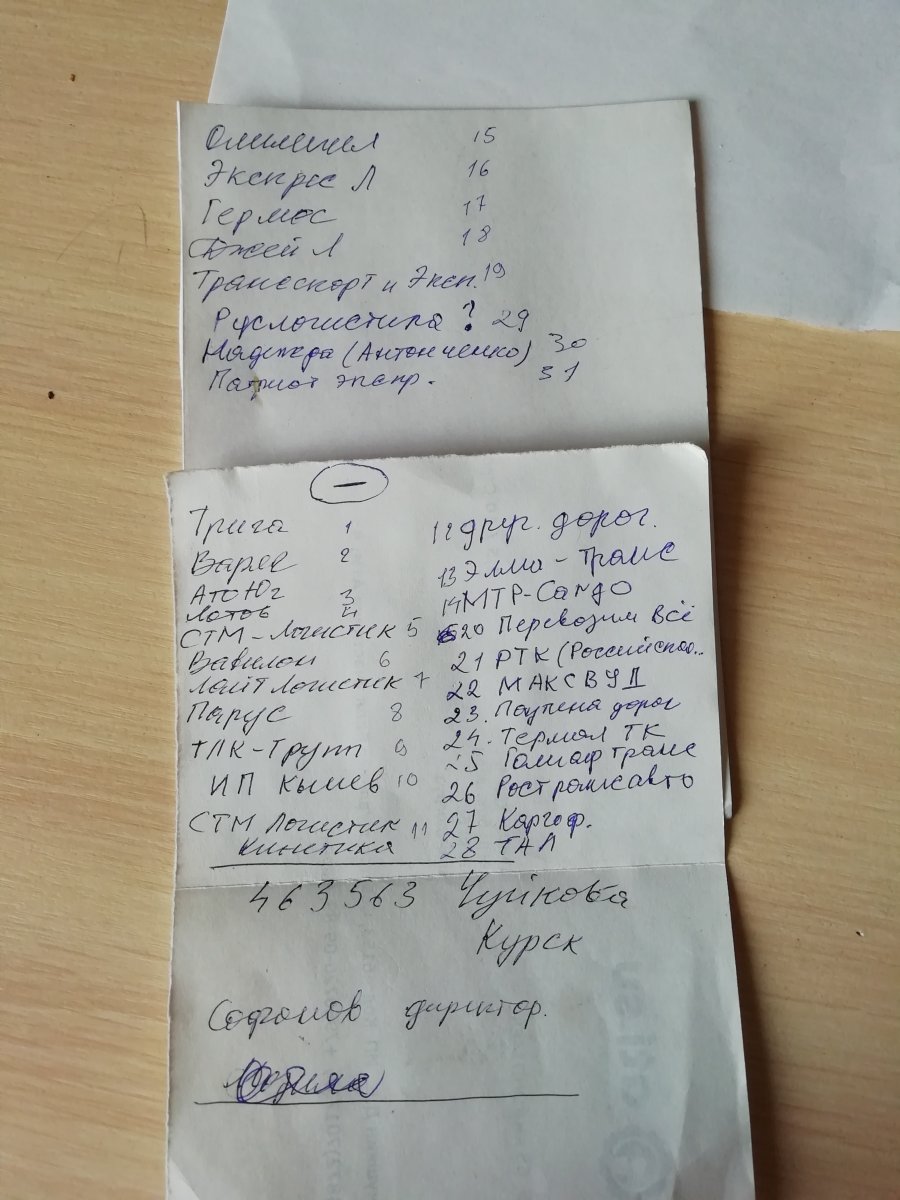 15
Экспрес Л 16
Гермес 17
Бжей Л 18
Транспорт и Эксп. 19
Руслогистика ? 29
Надежда (Антонченко) 30
Патриот экспр. 31
—
Трига 1
Варяг 2
АтоЮг 3
Лотов 4
СТМ-Логистик 5
Вавилон 6
Лайт Логистик 7
Парус 8
ТЛК-Групп 9
ИП Кышев 10
СТМ Логистик 11
Кинетика
12 друг. дорог.
13 Элма-Транс
14 МТР-Cargo
20 Перевозим Всё
21 РТК (Российская..
22 МАКСВУД
23. Паутина дорог
24. Термал ТК
25 Голиаф Транс
26 Ространсавто
27 Каргоф.
28 ТАЛ
463563 Чуйкова
Курск
Софонов директор.